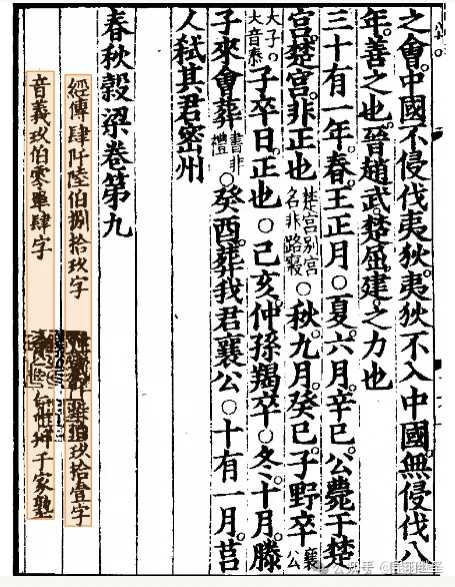 之會中國不侵伐夷狄夷狄不入中國無侵伐八
年善之也晉趙武楚屈建之力也
三十有一年春王正月○夏六月辛巳公薨于楚
宮楚宮非正也楚宮別宮名非路寢○秋九月癸巳子野卒襄公
大子大音泰子卒日正也○己亥仲孫羯卒○冬十月滕
子來會葬書非禮○癸酉葬我君襄公○十有一月莒
人弒其君密州
春秋穀梁卷第九
經傳肆阡陸伯捌拾玖字 伯玖拾壹字
音義玖伯零單肆字 于家塾